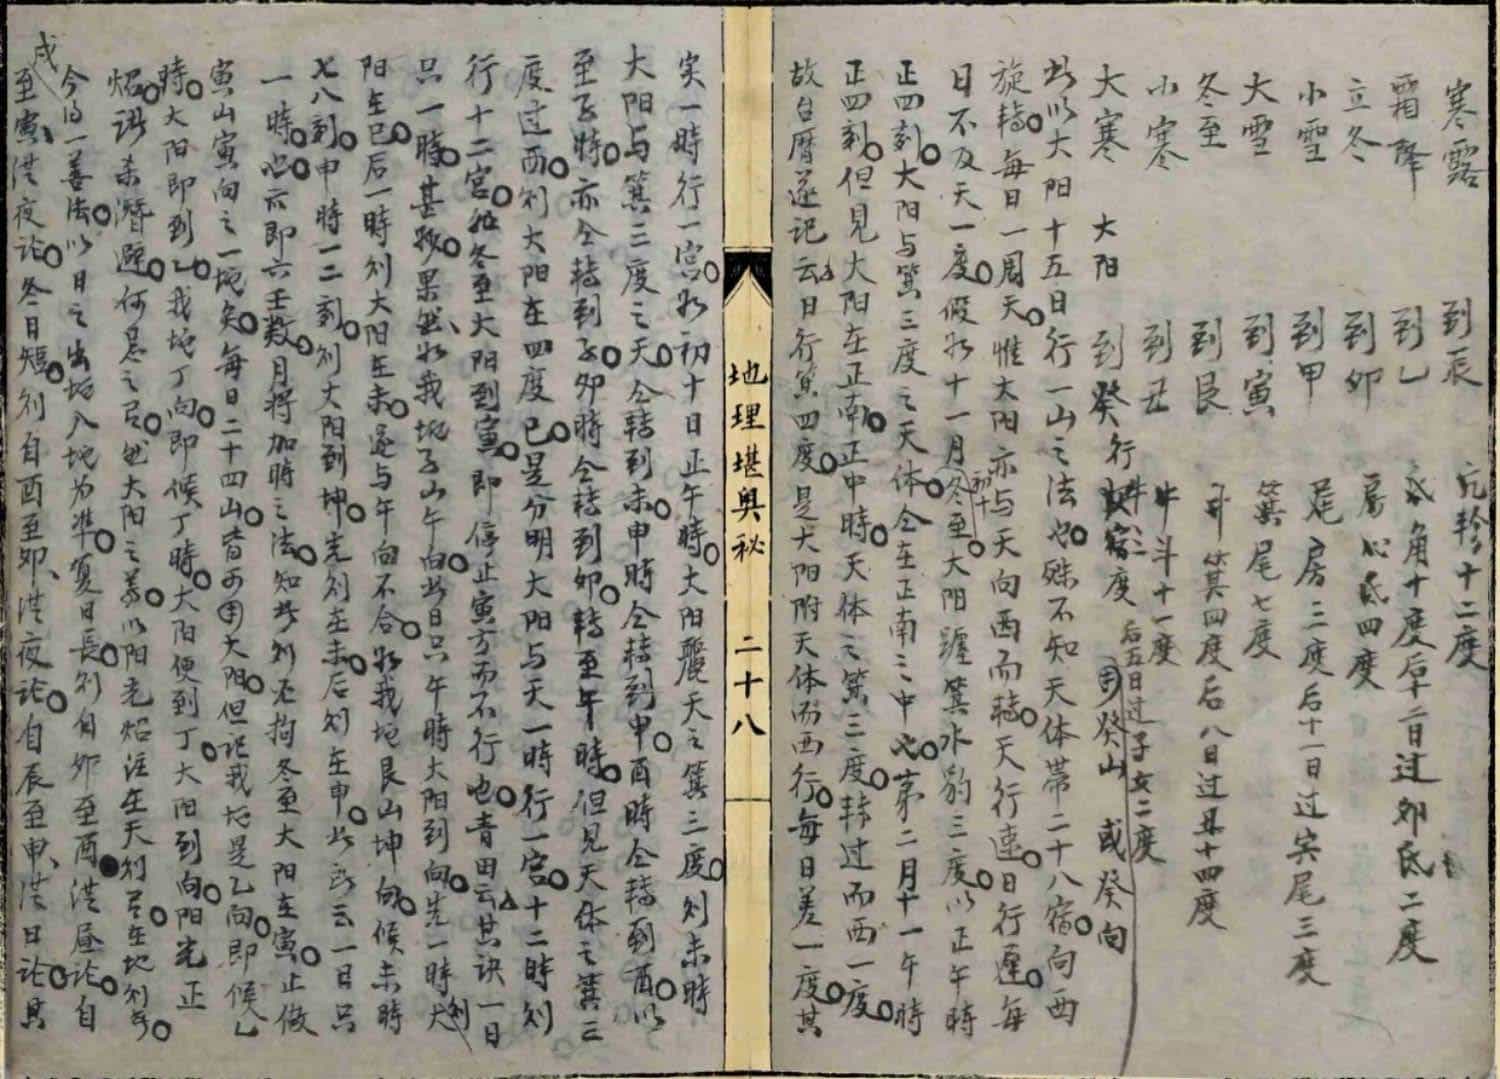 寒露 到辰 亢軫十二度
霜降 到乙 氐角十度后十二日过卯氐二度
立冬 到卯 房心氐四度
小雪 到甲 尾房三度后十一日过寅尾三度
大雪 到寅 箕尾七度
冬至 到艮 斗箕四度后八日过丑十四度
小寒 到丑 牛斗十一度
大寒 大阳 到癸行 度 后五日过子女二度 癸山 或癸向
此以大阳十五日行一山之法也殊不知天体帶二十八宿向西
旋轉每日一周天惟大阳亦与天向西而轉天行速日行遲每
日不及天一度假如十一月初十冬至大阳躔箕水豹三度以正午時
正四刻大阳与箕三度之天体仝在正南之中也第二月十一午時
正四刻但見大阳在正南正中時天体之箕三度转过而西一度
故台曆遂记云日行箕四度是大阳附天体而西行每日差一度其
地理堪奥秘 二十八
实一時行一宫如初十日正午時大阳麗天之箕三度刘未時
大阳与箕三度之天仝轉到未申時仝轉到申酉時仝轉到酉以
至子時亦仝轉到子卯時仝轉到卯轉至午時但見天体之箕三
度过西刘大阳在四度已是分明大阳与天一時行一宫十二時刘
行十二宫如冬至大阳到寅即停止寅方而不行也青田云其诀一日
只一時甚妙果然如我地子山午向此日只午時大阳到向先一時刘大
阳在巳后一時刘大阳在未遂与午向不合如我地艮山坤向候未時
七八刻申時一二刻刘大阳到坤先刘在未后刘在申此所云一日只
一時也六即六壬数月將加時之法知此刘不拘冬至大阳在寅止做
寅山寅向之一地矣每日二十四山皆可用大阳但记我地是乙向即候乙
時大阳即到乙我地丁向即候丁時大阳便到丁大阳到向阳光正
炤諸杀潛避何忌之有也大阳之義以阳光炤注在天刘有在地刘
今得一善法以日之出地入地为準夏日長刘自卯至酉從昼论自
戌至寅從夜论冬日短刘自酉至卯從夜论自辰至申從日论其